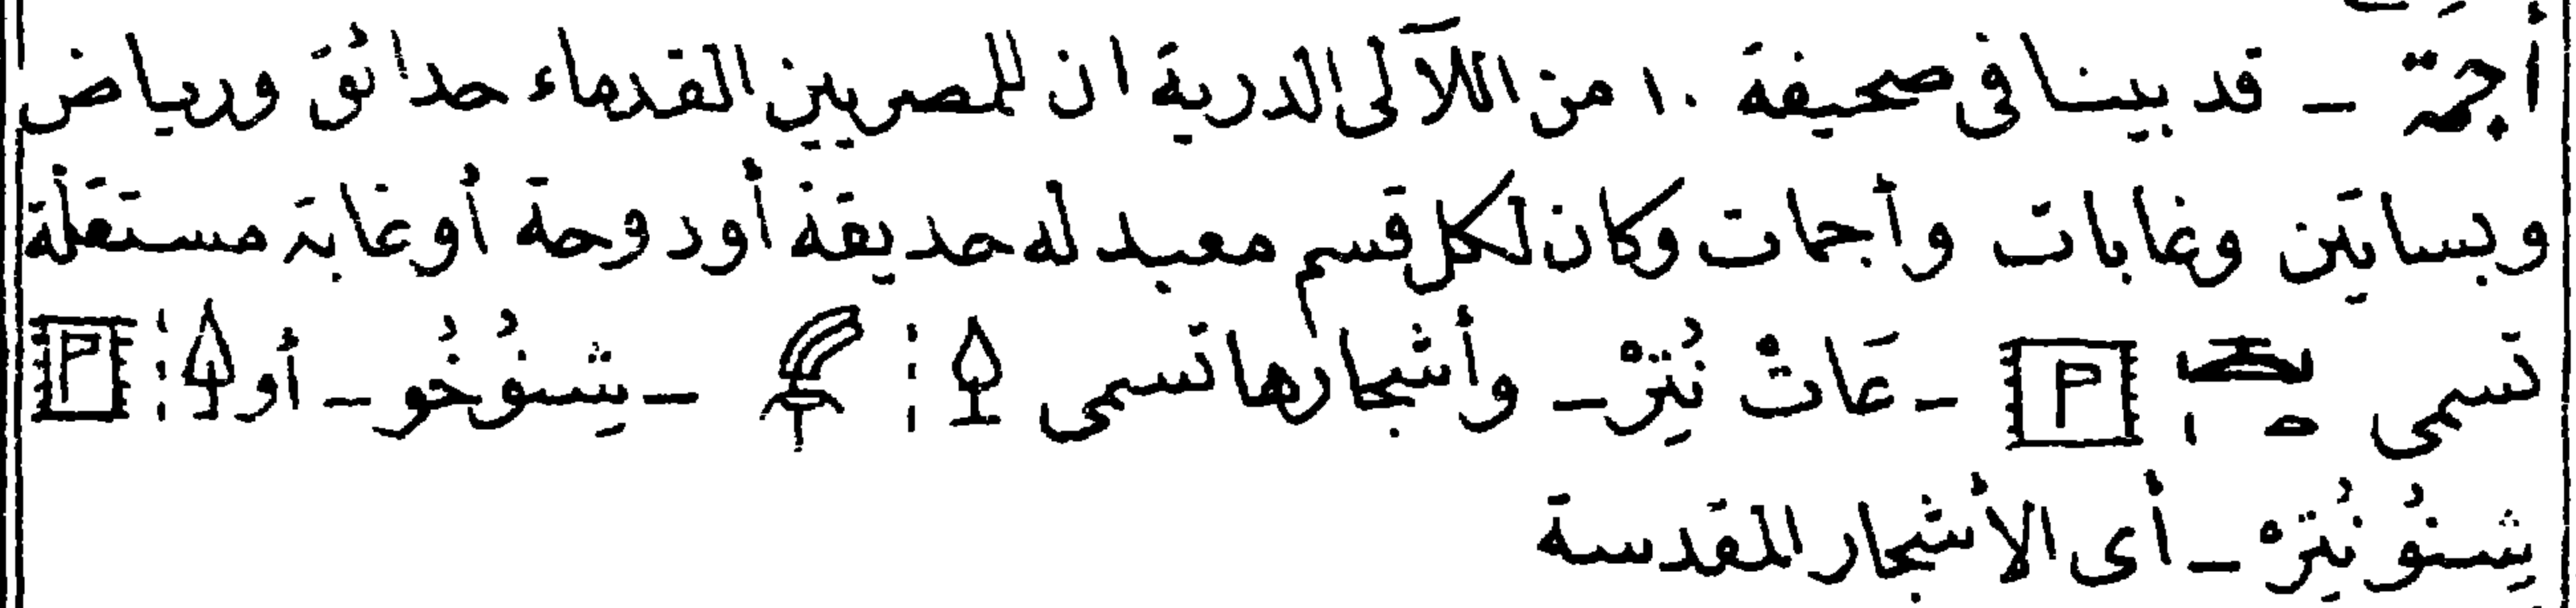 أجمة ـ قد بينا فى صحيفة ١٠ من اللآلى الدرية ان للمصريين القدماء حدائق ورياض
وبساتين وغابات وأجمات وكان لكل قسم معبد له حديقة أو دوحة أو غابة مستقلة
تسمى ـ عَاتْ نُتِرْ ـ وأشجارها تسمى ـ شِنُو خُو ـ أو
شِنُو نُتِرْ ـ أى الأشجار المقدسة